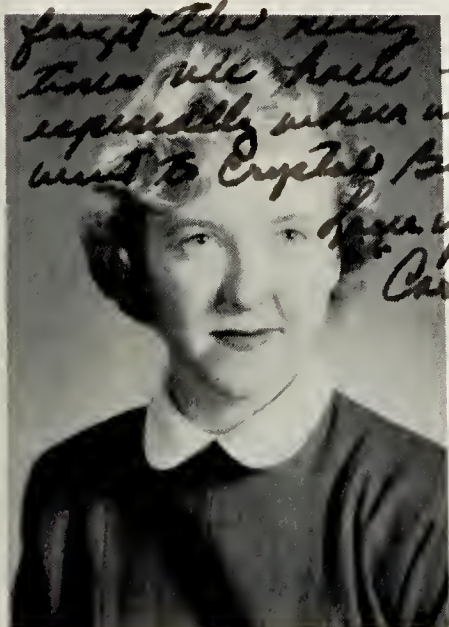 forget the many
times we have
especially when w
went to Crystal B
Love
Car